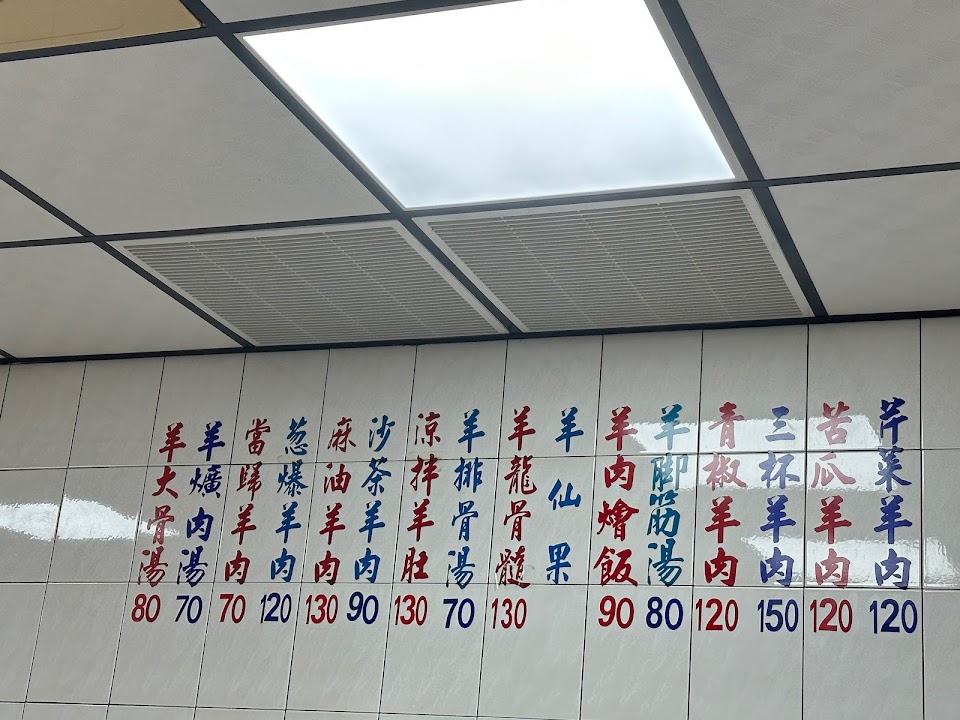 芹菜羊肉 120
苦瓜羊肉 120
三杯羊肉 150
青椒羊肉 120
羊脚筋湯 80
羊肉燴飯 90
羊仙果
羊龍骨髓 130
羊排骨湯 70
涼拌羊肚 130
沙茶羊肉 90
麻油羊肉 130
葱爆羊肉 120
當歸羊肉 70
羊爌肉湯 70
羊大骨湯 80